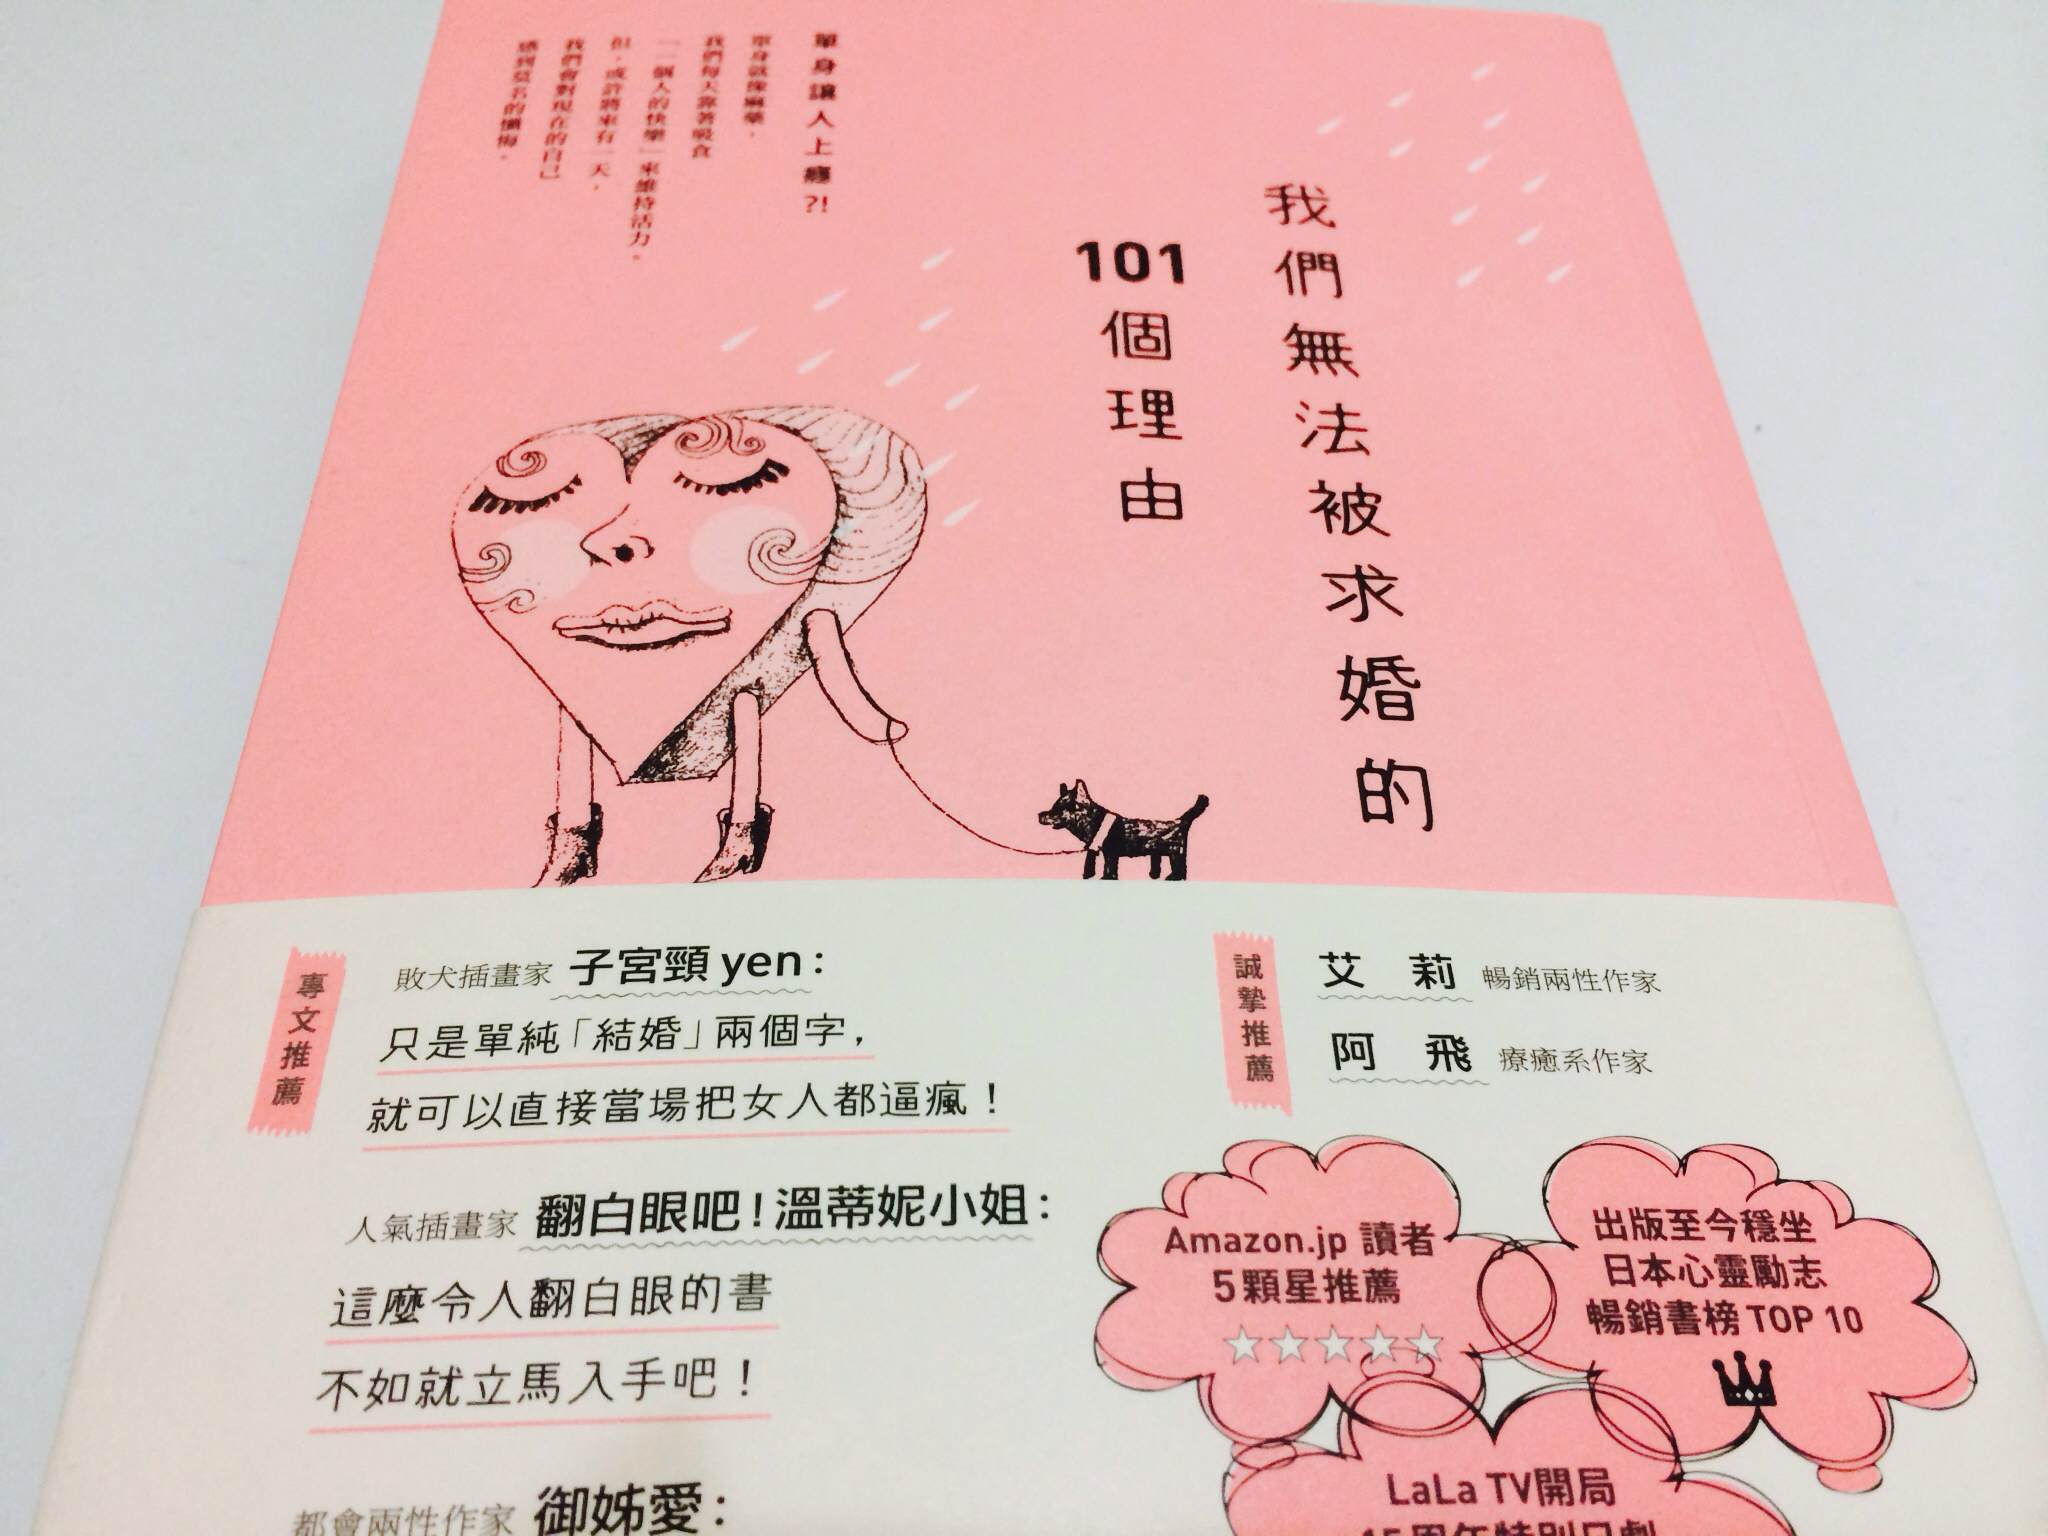 我們無法被求婚的
101個理由
單身讓人上癮?!
單身就像麻藥，
我們每天靠著吸食
「一個人的快樂」來維持活力。
但，或許將來有一天，
我們會對現在的自己
感到莫名的懺悔。
專文推薦
敗犬插畫家 子宮頸yen：
只是單純「結婚」兩個字，
就可以直接當場把女人都逼瘋！
人氣插畫家 翻白眼吧！溫蒂妮小姐：
這麼令人翻白眼的書
不如就立馬入手吧！
都會兩性作家 御姊愛：
誠摯推薦
艾莉 暢銷兩性作家
阿飛 療癒系作家
Amazon.jp 讀者
5顆星推薦
出版至今穩坐
日本心靈勵志
暢銷書榜TOP 10
LaLa TV開局
15周年特別日劇